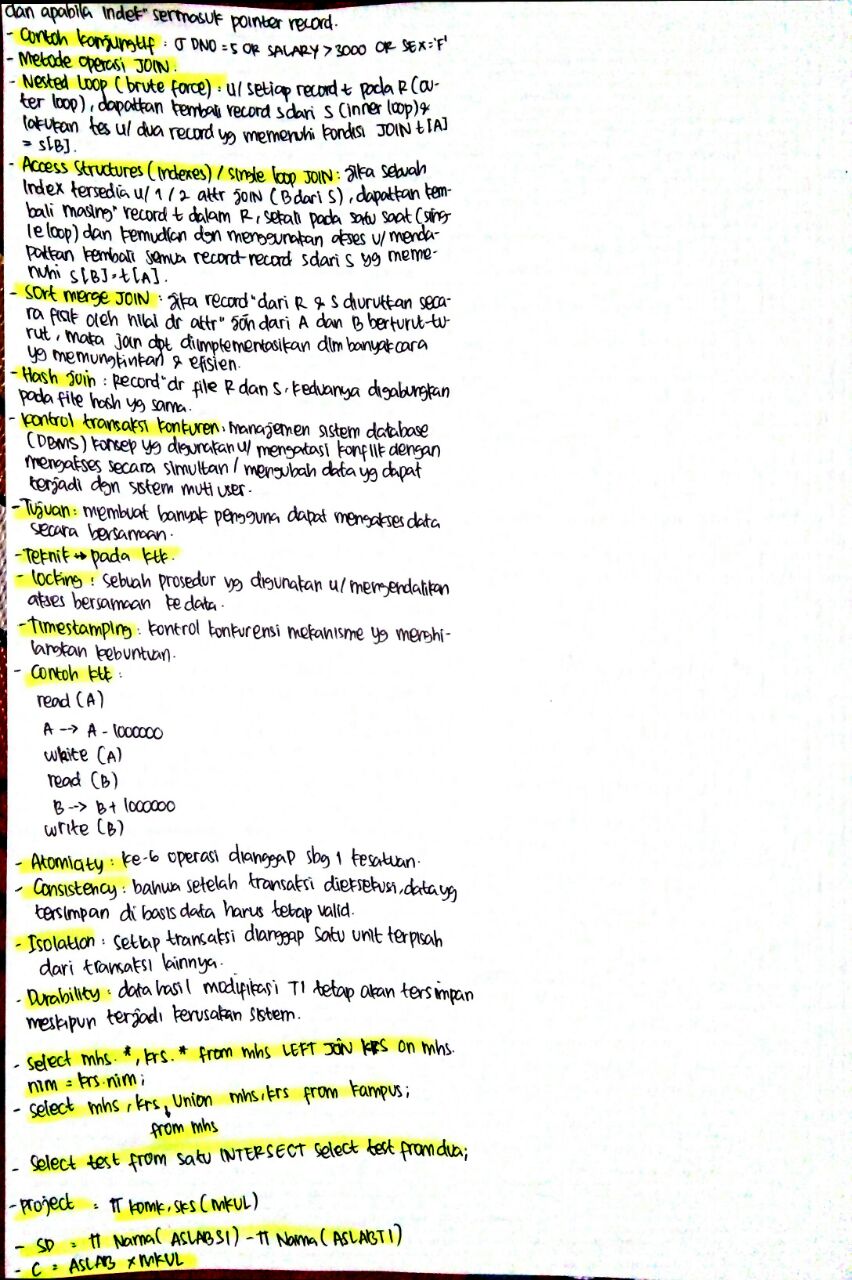 dan apabila Indek" sermasuk pointer record.
- Contoh konjungtif : σ DNO = 5 OR SALARY > 3000 OR SEX = 'F'
- Metode operasi JOIN.
- Nested Loop (brute force) : u/ setiap record t pada R (ou-
ter loop), dapatkan kembali record s dari S (inner loop) &
lakukan tes u/ dua record yg memenuhi kondisi JOIN t[A]
= s[B].
- Access Structures (Indexes) / single loop JOIN : jika sebuah
Index tersedia u/ 1 / 2 attr JOIN (B dari S), dapatkan kem-
bali masing" record t dalam R, sekali pada satu saat (sing-
le loop) dan kemudian dgn menggunakan akses u/ menda-
patkan kembali semua record-record s dari S yg meme-
nuhi s[B] = t[A].
- Sort merge JOIN : jika record" dari R & S diurutkan seca-
ra fisik oleh nilai dr attr" join dari A dan B berturut-tu-
rut, maka join dpt diimplementasikan dlm banyak cara
yg memungkinkan & efisien.
- Hash join : Record" dr file R dan S, keduanya digabungkan
pada file hash yg sama.
- kontrol transaksi konkuren : manajemen sistem database
(DBMS) konsep yg digunakan u/ mengatasi konflik dengan
mengakses secara simultan / mengubah data yg dapat
terjadi dgn sistem muti user.
- Tujuan : membuat banyak pengguna dapat mengakses data
secara bersamaan.
- Teknik ↔ pada ktk.
- locking : Sebuah prosedur yg digunakan u/ mengendalikan
akses bersamaan ke data.
- Timestamping : kontrol konkurensi mekanisme yg menghi-
langkan kebuntuan.
- Contoh ktk :
read (A)
A --> A - 1000000
write (A)
read (B)
B --> B + 1000000
write (B)
- Atomicaty : ke-6 operasi dianggap sbg 1 kesatuan.
- Consistency : bahwa setelah transaksi dieksekusi, data yg
tersimpan di basis data harus tetap valid.
- Isolation : setiap transaksi dianggap satu unit terpisah
dari transaksi lainnya.
- Durability : data hasil modifikasi T1 tetap akan tersimpan
meskipun terjadi kerusakan sistem.
- select mhs. *, krs. * from mhs LEFT JOIN KRS On mhs.
nim = krs.nim ;
- select mhs, krs, Union mhs, krs from kampus ;
from mhs
- Select test from satu INTERSECT select test from dua;
- project = π komk, sks (MKUL)
- SD = π Nama (ASLABSI) - π Nama (ASLABTI)
- C = ASLAB × MKUL